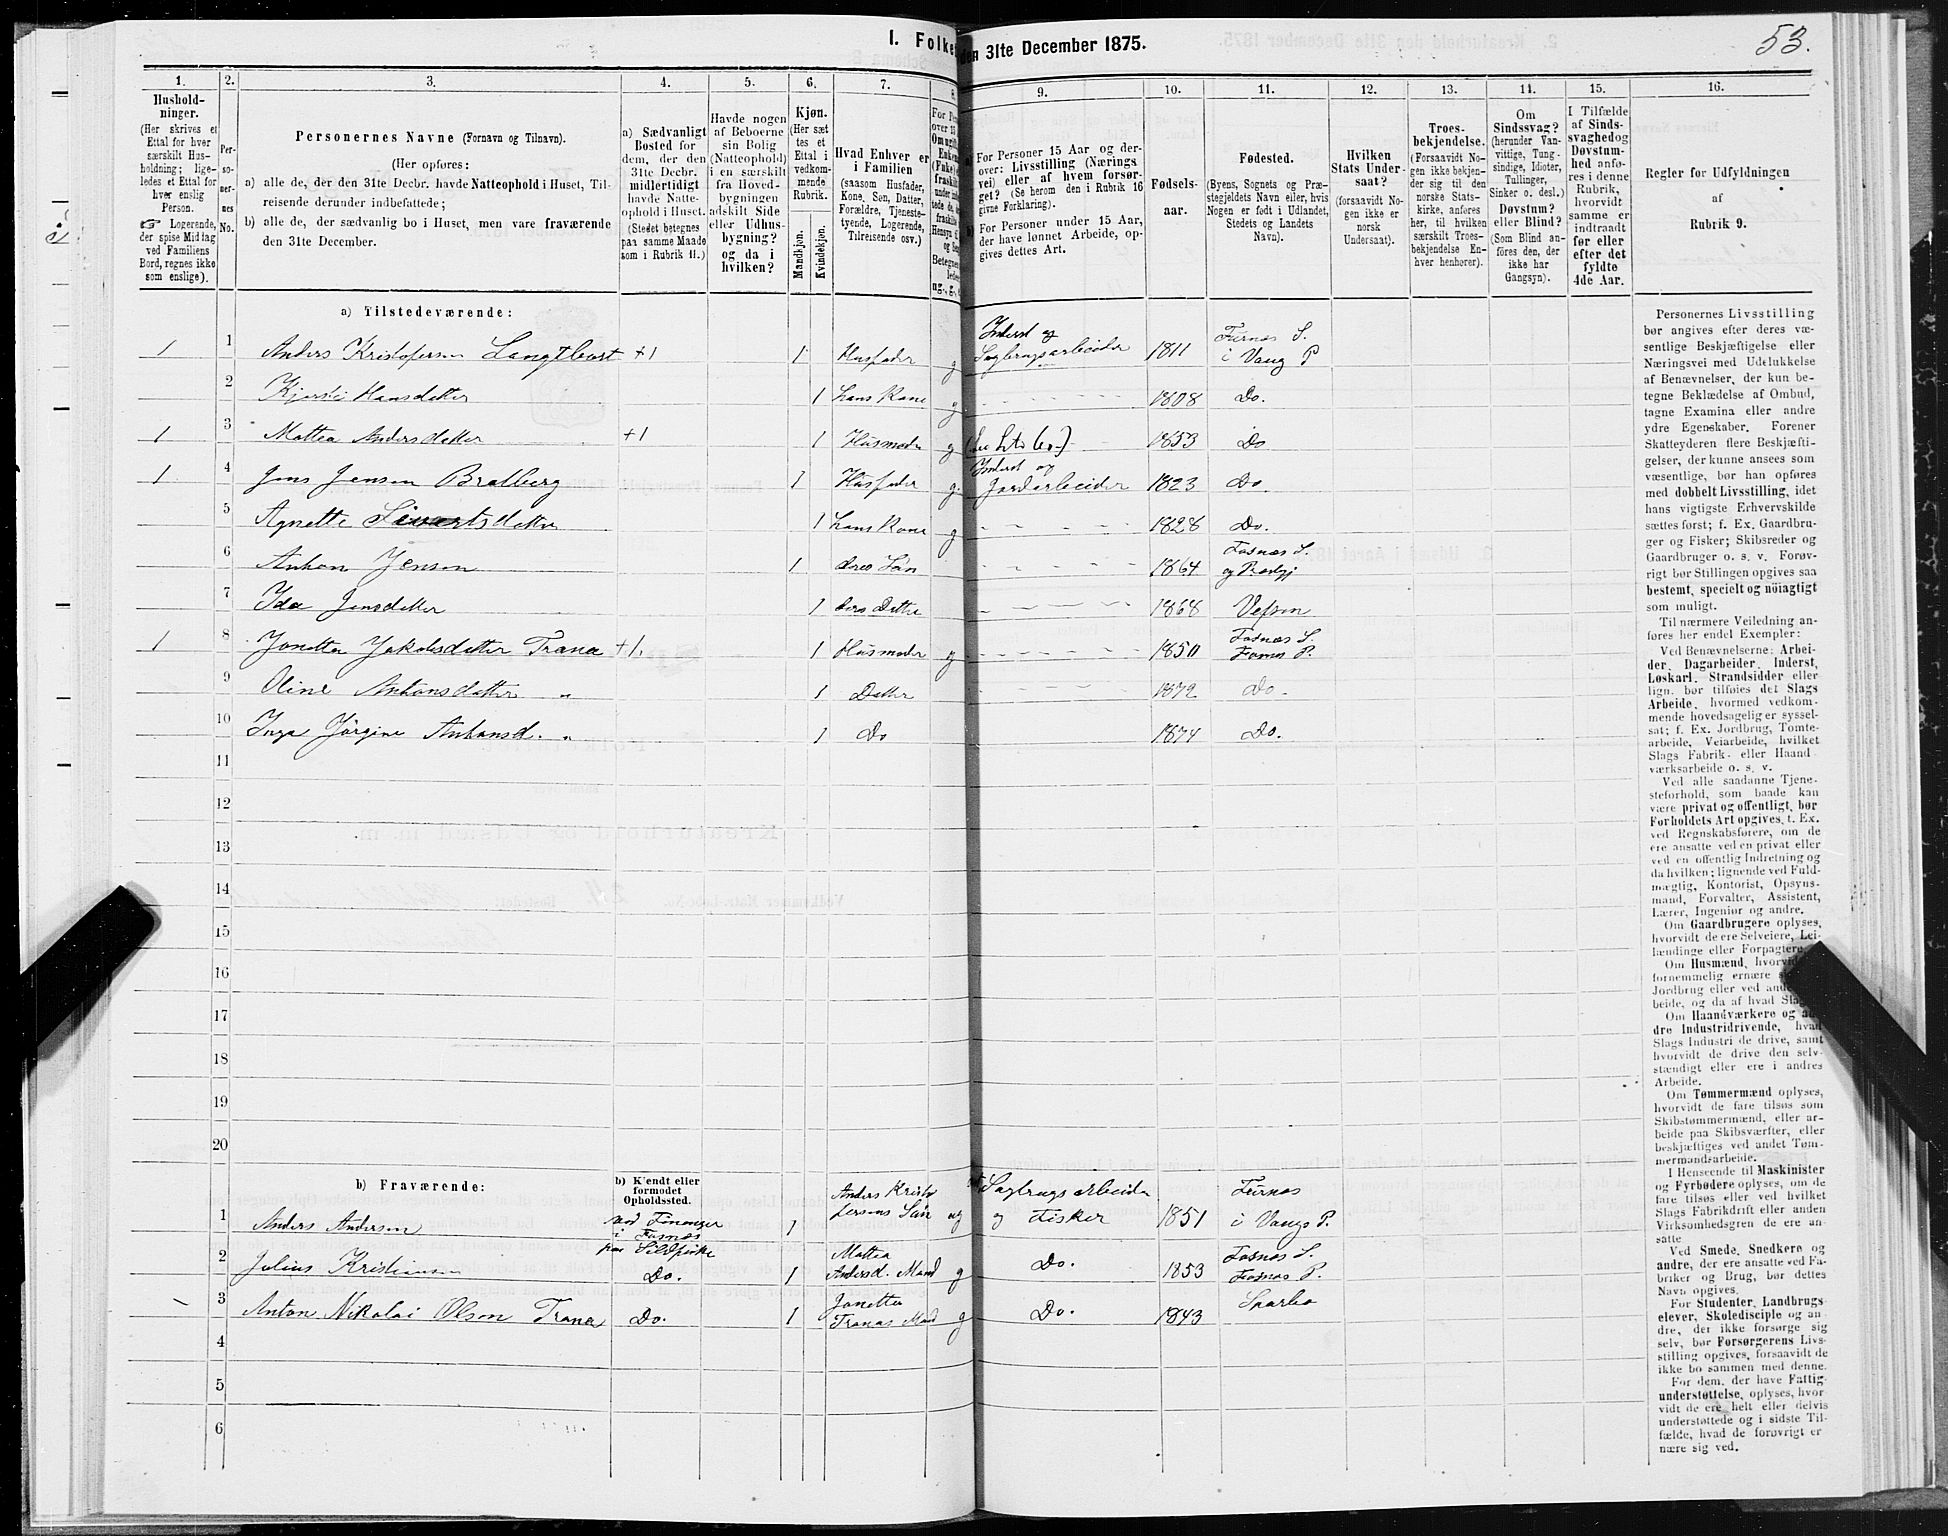 53.
I. Folke
den 31te December 1875.
1.
2.
3.
4.
5.
6.
7.
8
9.
10.
11.
12.
13.
14.
15.
16.
Hushold-
ninger.
(Her skrives et
Ettal for hver
særskilt Hus-
holdning; lige-
ledes et Ettal for
hver enslig
Person.
☞ Logerende,
der spise Middag
ved Familiens
Bord, regnes ikke
som enslige).
Per-
so-
ner-
nes
No.
Personernes Navne (Fornavn og Tilnavn).
(Her opføres:
a) alle de, der den 31te Decbr. havde Natteophold i Huset, Til-
reisende derunder indbefattede;
b) alle de, der sædvanlig bo i Huset, men vare fraværende
den 31te December.
a) Sædvanligt
Bosted for
dem, der den
31te Decbr.
midlertidigt
havde Natte-
ophold i Huset.
(Stedet betegnes
paa samme Maade
som i Rubrik 11.)
Havde nogen
af Beboerne
sin Bolig
(Natteophold)
i en særskilt
fra Hoved-
bygningen
adskilt Side
eller Udhus-
bygning?
og da i
hvilken?
Kjøn.
(Her sæt
tes et
Ettal i
vedkom-
mende
Rubrik.
Mandkjøn.
Kvindekjøn.
Hvad Enhver er
i Familien
(saasom Husfader,
Kone, Søn, Datter,
Forældre, Tjeneste-
tyende, Logerende,
Tilreisende osv.)
For Personer 15 Aar og der-
over: Livsstilling (Nærings
vei) eller af hvem forsør-
get? (Se herom den i Rubrik 16
givne Forklaring).
For Personer under 15 Aar,
der have lønnet Arbeide, op-
gives dettes Art.
Fødsels-
aar.
Fødested.
(Byens, Sognets og Præ-
stegjeldets Navn eller, hvis
Nogen er født i Udlandet,
Stedets og Landets
Navn).
Hvilken
Stats Under-
saat?
(forsaavidt No-
gen ikke er
norsk
Undersaat).
Troes-
bekjendelse.
(Forsaavidt No-
gen ikke bekjen-
der sig til den
norske Stats-
kirke, anføres
her, til hvilken
særskilt Troes-
bekjendelse En-
hver henhører).
Om
Sindssvag?
(herunder Van-
vittige, Tung-
sindige, Idioter,
Tullinger,
Sinker o. desl.)
Døvstum?
eller Blind?
(Som Blind an-
føres den, der
ikke har
Gangsyn).
I Tilfælde
af Sinds-
svaghed og
Døvstum-
hed anfø-
res i denne
Rubrik,
hvorvidt
samme er
indtraadt
før eller
efter det
fyldte
4de Aar.
Regler for Udfyldningen
af
Rubrik 9.
a) Tilstedeværende:
1 1 Anders Kristofersen Langtbost +1 1 Husfader g Inderst og Sagbrugsarbeider 1811 Furnæs S. i Vang P
2 Kjersti Hansdatter 1 hans Kone g 1808 Do.
1 3 Mattea Andersdatter +1 1 Husmoder g 1853 Do
1 4 Jens Jensen Bratberg 1 Husfader g. Inderst og Jordarbeider 1823 Do.
5 Agnette Sivertsdatter 1 hans Kone g 1828 Do.
6 Anton Jensen 1 deres Søn 1864 Fosnæs S. og Præstgj
7 Ida Jensdatter 1 deres Datter 1868 Vefsen
1 8 Jonetta Jakobsdatter Trana +1. 1 Husmoder g 1850 Fosnæs S. Fosnæs P.
9 Oline Antonsdatter „ 1 Datter 1872 Do.
10 Inga Jørgine Antonsd. „ 1 Do 1874 Do.
11
12
13
14
15
16
17
18
19
20
b) Fraværende:
b) Kjendt eller
formodet
Opholdssted.
1 Anders Andersen ved Finanger i Fosnæs paa Sildfiske 1 Anders Kristofersens Søn ug Sagbrugsarbeider og Fisker 1851 Furnæs i Vangs P.
2 Julius Kristiansen Do. 1 Mattea Andersd. Mand g Do. 1853 Fosnæs S. Fosnæs P.
3 Anton Nikolai Olsen Trana Do. 1 Jonetta Tranas Mand g Do. 1843 Sparbo
4
5
6
Personernes Livsstilling
bør angives efter deres væ-
sentlige Beskjæftigelse eller
Næringsvei med Udelukkelse
af Benævnelser, der kun be-
tegne Beklædelse af Ombud,
tagne Examina eller andre
ydre Egenskaber. Forener
Skatteyderen flere Beskjæfti-
gelser, der kunne ansees som
væsentlige, bør han opføres
med dobbelt Livsstilling, idet
hans vigtigste Erhvervskilde
sættes først; f. Ex. Gaardbru-
ger og Fisker; Skibsreder og
Gaardbruger o. s. v. Forøv-
rigt bør Stillingen opgives saa
bestemt, specielt og nöiagtigt
som muligt.
Til nærmere Veiledning an-
føres her endel Exempler:
Ved Benævnelserne: Arbei-
der, Dagarbeider, Inderst,
Løskarl, Strandsidder eller
lign. bør tilføies det Slags
Arbeide, hvormed vedkom-
mende hovedsagelig er syssel-
sat; f. Ex. Jordbrug, Tomte-
arbeide, Veiarbeide, hvilket
Slags Fabrik- eller Haand-
værksarbeide o. s. v.
Ved alle saadanne Tjene-
steforhold, som baade kan
være privat og offentligt, bør
Forholdets Art opgives, t. Ex.
ved Regnskabsførere, om de
ere ansatte ved en privat eller
ved en offentlig Indretning og
da hvilken; lignende ved Fuld-
mægtig, Kontorist, Opsyns-
mand, Forvalter, Assistent,
Lærer, Ingeniør og andre.
Om Gaardbrugere oplyses,
hvorvidt de ere Selveiere, Lei-
lændinge eller Forpagtere
Om Husmænd, hvorvidt
fornemmelig ernære
Jordbrug eller ved
beide, og da af hvad
Om Haandværkere og
dre Industridrivende, hvad
Slags Industri de drive, samt
hvorvidt de drive den selv-
stændigt eller ere i andres
Arbeide.
Om Tømmermænd oplyses,
hvorvidt de fare tilsøs som
Skibstømmermænd, eller ar-
beide paa Skibsværfter, eller
beskjæftiges ved andet Tøm-
mermandsarbeide.
I Henseende til Maskinister
og Fyrbødere oplyses, om de
fare tilsøs eller ved hvilket
Slags Fabrikdrift eller anden
Virksomhedsgren de ere an-
satte
Ved Smede, Snedkere og
andre, der ere ansatte ved Fa-
briker og Brug, bør dettes
Navn opgives.
For Studenter, Landbrugs-
elever, Skoledisciple og an-
dre, der ikke forsørge sig
selv, bør Forsørgerens Livs-
stilling opgives, forsaavidt de
ikke bo sammen med denne.
For dem, der have Fattig-
understøttelse, oplyses, hvor-
vidt de ere helt eller delvis
understøttede og i sidste Til-
fælde, hvad de forøvrigt er
nære sig ved.